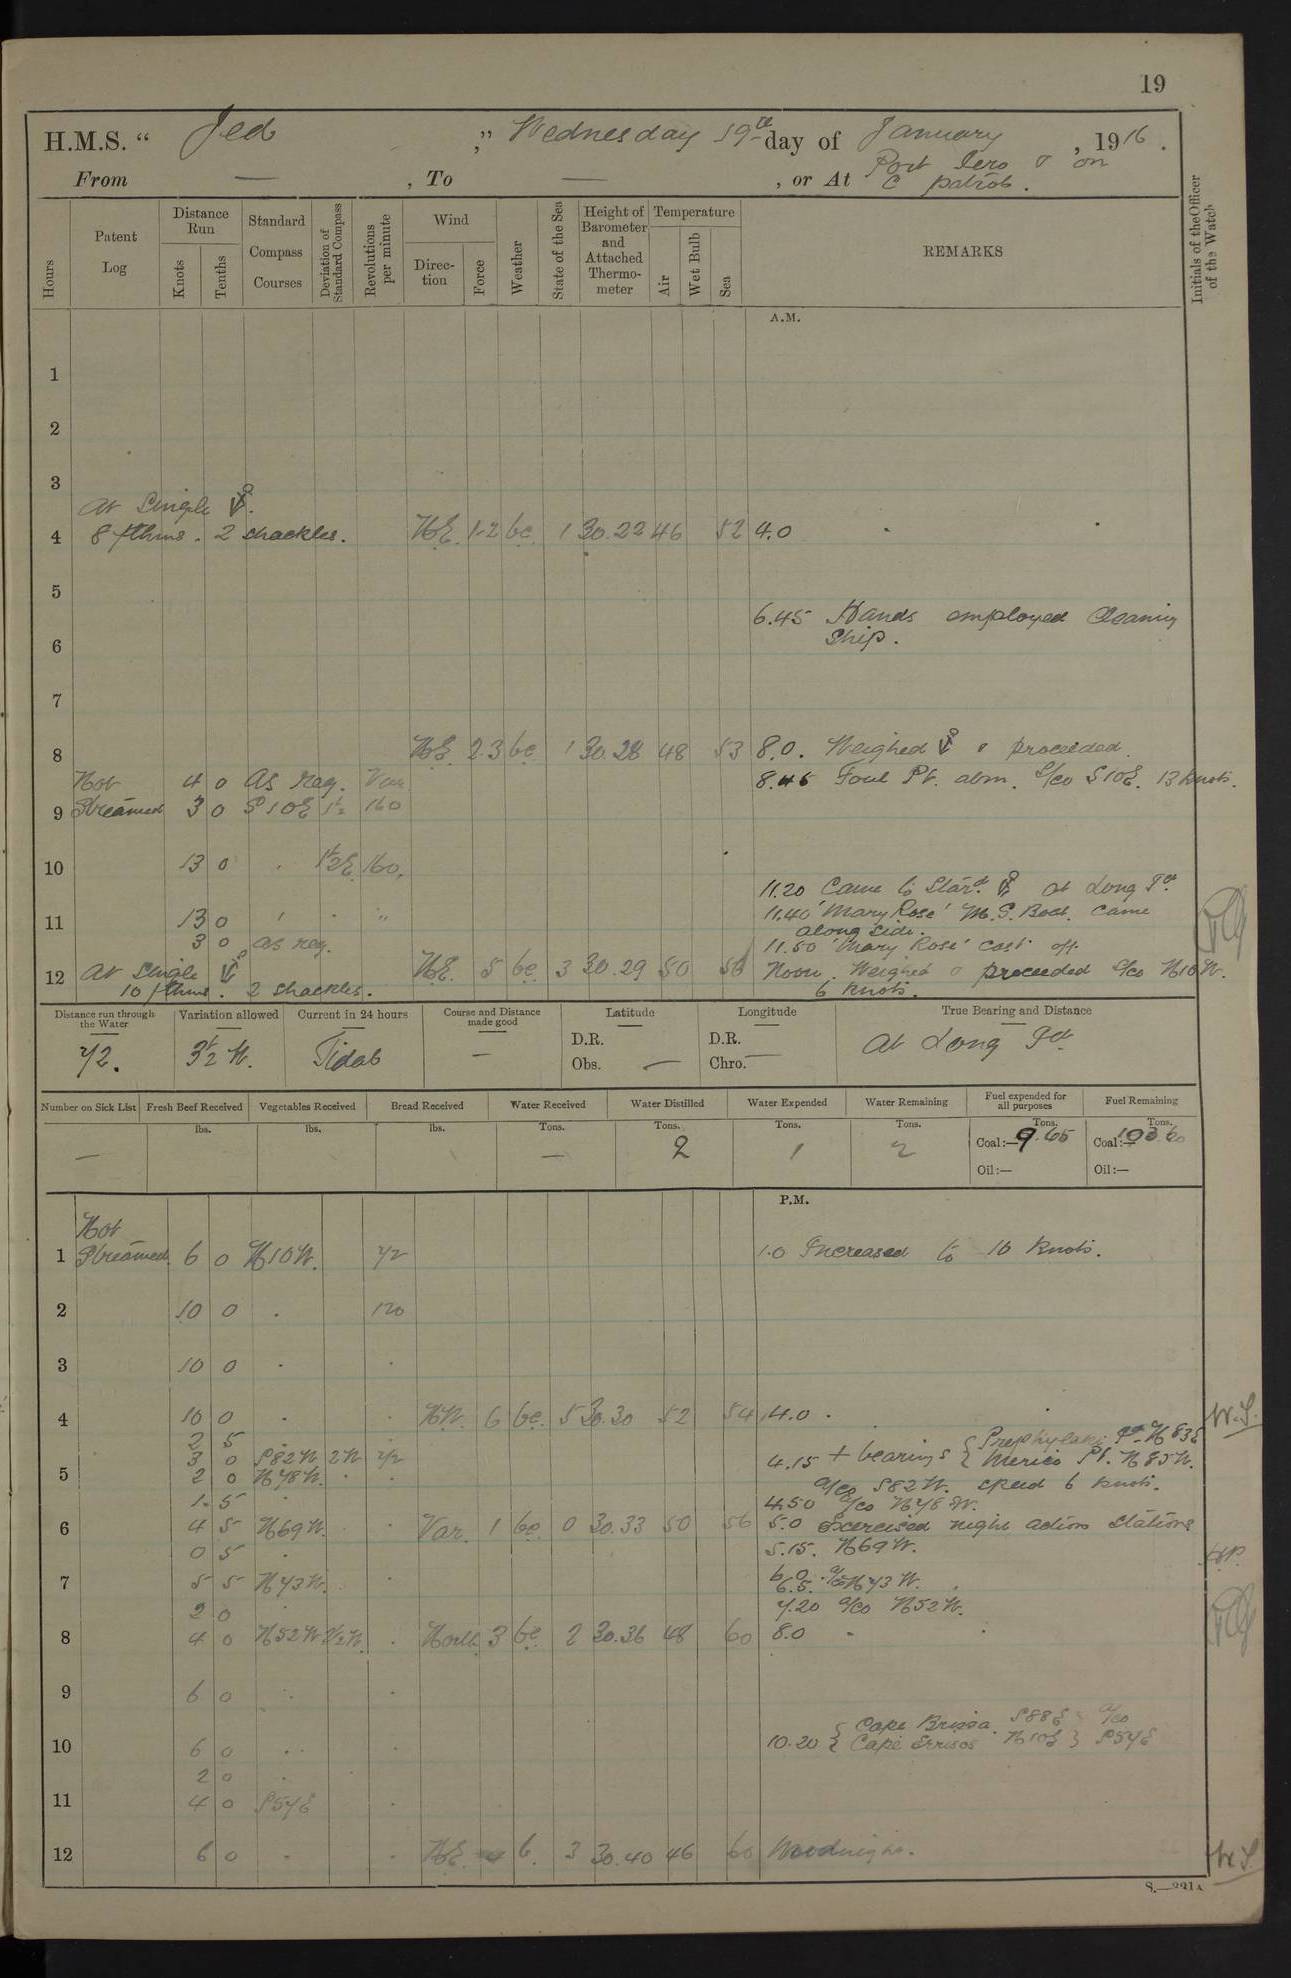 19
H.M.S. “ Jed ,” Wednesday 19th day of January , 1916 .
From — , To — , or At Port Iero & on C patrol.
Hours
Patent Log
Distance Run
Knots
Tenths
Standard Compass Courses
Deviation of Standard Compass
Revolutions per minute
Wind
Direc-tion
Force
Weather
State of the Sea
Height of Barometer and Attached Thermo-meter
Temperature
Air
Wet Bulb
Sea
REMARKS
Initials of the Officer of the Watch
A.M.
1
2
3
At Single
4 8 fthms. 2 shackles. NE. 1-2 bc. 1 30.22 46 52 4.0
5
6.45 Hands employed Cleaning
6 Ship.
7
8 NE. 2.3 bc 1 30.28 48 53 8.0. Weighed & proceeded.
Not 4 0 As req. Var 8.45 Foul Pt. abm. a/co S10E. 13 knots.
9 Streamed 3 0 S10E 1½ 160
10 13 0 . 1½E 160.
11.20 Came to Starbd at Long Id.
11 13 0 ' . " 11.40 'Mary Rose' M.S. Boat. Came
along side.
3 0 as req. 11.50 'Mary Rose' cast off
12 At Single NE. 5 bc. 3 30.29 50 56 Noon. Weighed & proceeded a/co N10W.
10 fthms. 2 shackles. 6 knots.
Distance run through the Water
72.
Variation allowed
3½ W.
Current in 24 hours
Tidal
Course and Distance made good
—
Latitude
D.R.
Obs. —
Longitude
D.R.
Chro. —
True Bearing and Distance
At Long Id.
Number on Sick List
—
Fresh Beef Received
lbs.
Vegetables Received
lbs.
Bread Received
lbs.
Water Received
Tons.
—
Water Distilled
Tons.
2
Water Expended
Tons.
1
Water Remaining
Tons.
2
Fuel expended for all purposes
Tons.
Coal:— 9.65
Oil:—
Fuel Remaining
Tons.
Coal:— 103.60
Oil:—
P.M.
Not
1 Streamed. 6 0 N10W. 72 1.0 Increased to 10 knots.
2 10 0 . 120
3 10 0 . .
4 10 0 . . NW. 6 bc. 5 30.30 52 54 4.0 . W.S.
2 5 .
3 0 S82W 2W 72 4.15 + bearings { N83E
5 2 0 N78W. . . Merico Pt. N85W.
a/co S82W. speed 6 knots.
1. 5 . 4.50 a/co N78W.
6 4 5 N69W. . . Var. 1 bc. 0 30.33 50 56 5.0 Exercised night action stations
0 5 . 5.15. N69W.
7 5 5 N73W. . 6.0 .
6.5. a/co N73W.
2 0 . 7.20 a/co N52W.
8 4 0 N52W 2½W. . North 3 bc. 2 30.36 48 60 8.0 .
9 6 0 . .
10.20 { Cape S88E } a/co
10 6 0 . . { Cape N10E } S57E
2 0 .
11 4 0 S57E .
12 6 0 . . NE 4 b. 3 30.40 46 60 Midnight. W.S.
S.—221A